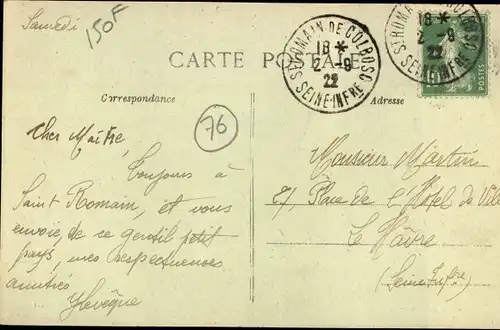 Samedi
150F
CARTE POSTALE
ST ROMAIN DE COLBOSC
18 *
2 - 9
22
SEINE-INFRE
ST ROMAIN DE COLBOSC
18 *
2 - 9
22
SEINE-INFRE
POSTES
Correspondance
Adresse
76
Cher Maître,
Toujours à
Saint Romain, et vous
envoie, de ce gentil petit
pays, mes respectueuses
amitiés
Monsieur Martin
Place de l'Hôtel de Ville
Le Hâvre
(Seine Infre)